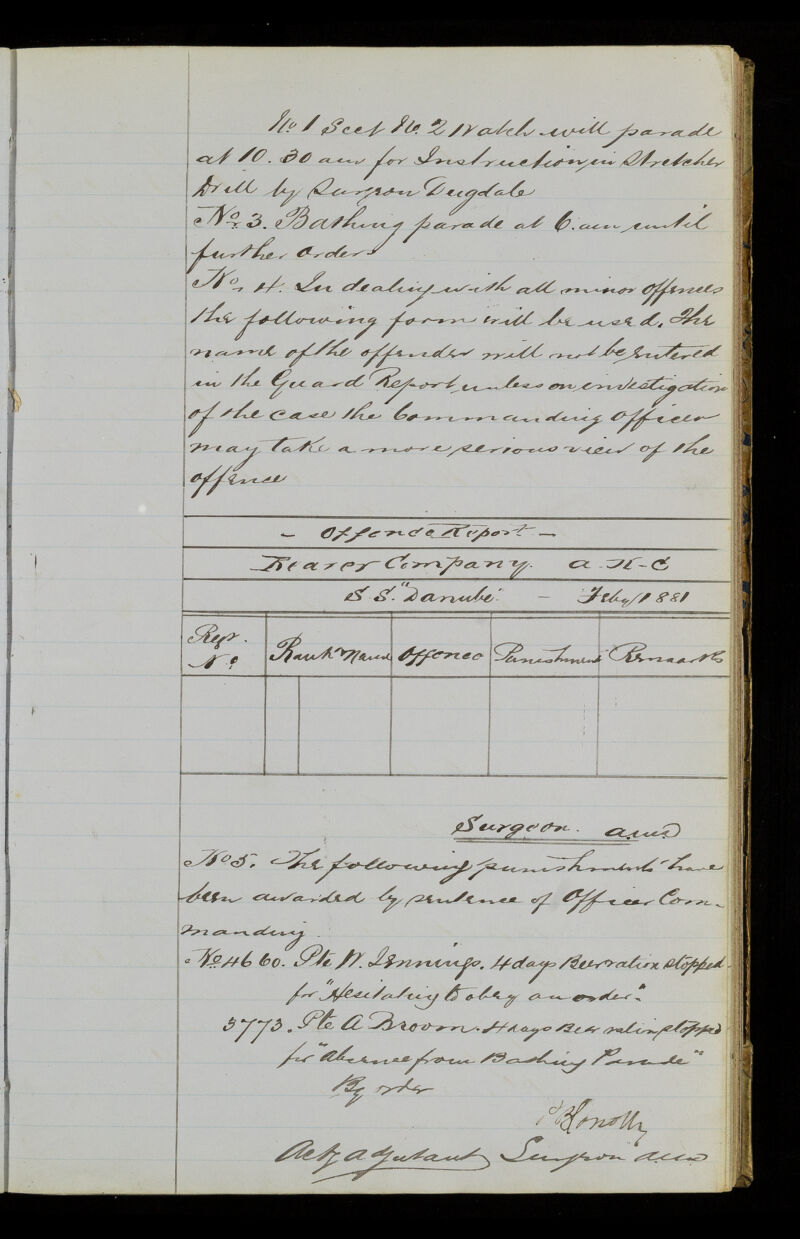 No 1 Sect No. 2 Watch will parade
at 10.30 am for Instruction in Stretcher
Drill by Surgeon Dugdale
No. 3. Bathing parade at 6. am until
further orders
No. 4. In dealing with all minor offences
the following form will be used. The
name of the offender will not be entered
in the Guard Report unless on investigation
of the case the Commanding Officer
may take a more serious view of the
offence
- Offence Report -
Bearer Company. A. H-C
S.S. "Danube" - Feby 1881
Regr. No. Rank & Name Offence Punishment Remarks
Surgeon. AMD
No 5. The following punishments have
been awarded by sentence of Officer Com-
manding
No 4660. Pte W. Jennings. 4 days Beer ration stopped
for "Hesitating to obey an order".
3773. Pte A Broom. 4 days Beer ration stopped
for "Absence from Bathing Parade"
By order
Actg Adjutant Surgeon AMD